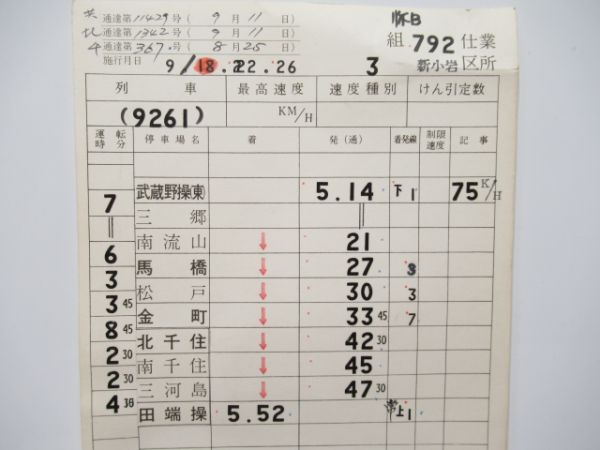 共 通達第11429号( 9月11日)
北 通達第1342号( 9月11日)
千 通達第367号( 8月25日)
施行月日 9/18.222.26
臨B
組 792 仕業
3 新小岩 区所
列車 最高速度 速度種別 けん引定数
(9261) KM/H
運転時分 停車場名 着 発(通) 着発線 制限速度 記事
武蔵野操(東) 5.14 下1 75 K/H
7
三郷 ||
||
南流山 ↓ 21
6
馬橋 ↓ 27 3
3
松戸 ↓ 30 3
3 45
金町 ↓ 33 45 7
8 45
北千住 ↓ 42 30
2 30
南千住 ↓ 45
2 30
三河島 ↓ 47 30
4 30
田端操 5.52 常上1